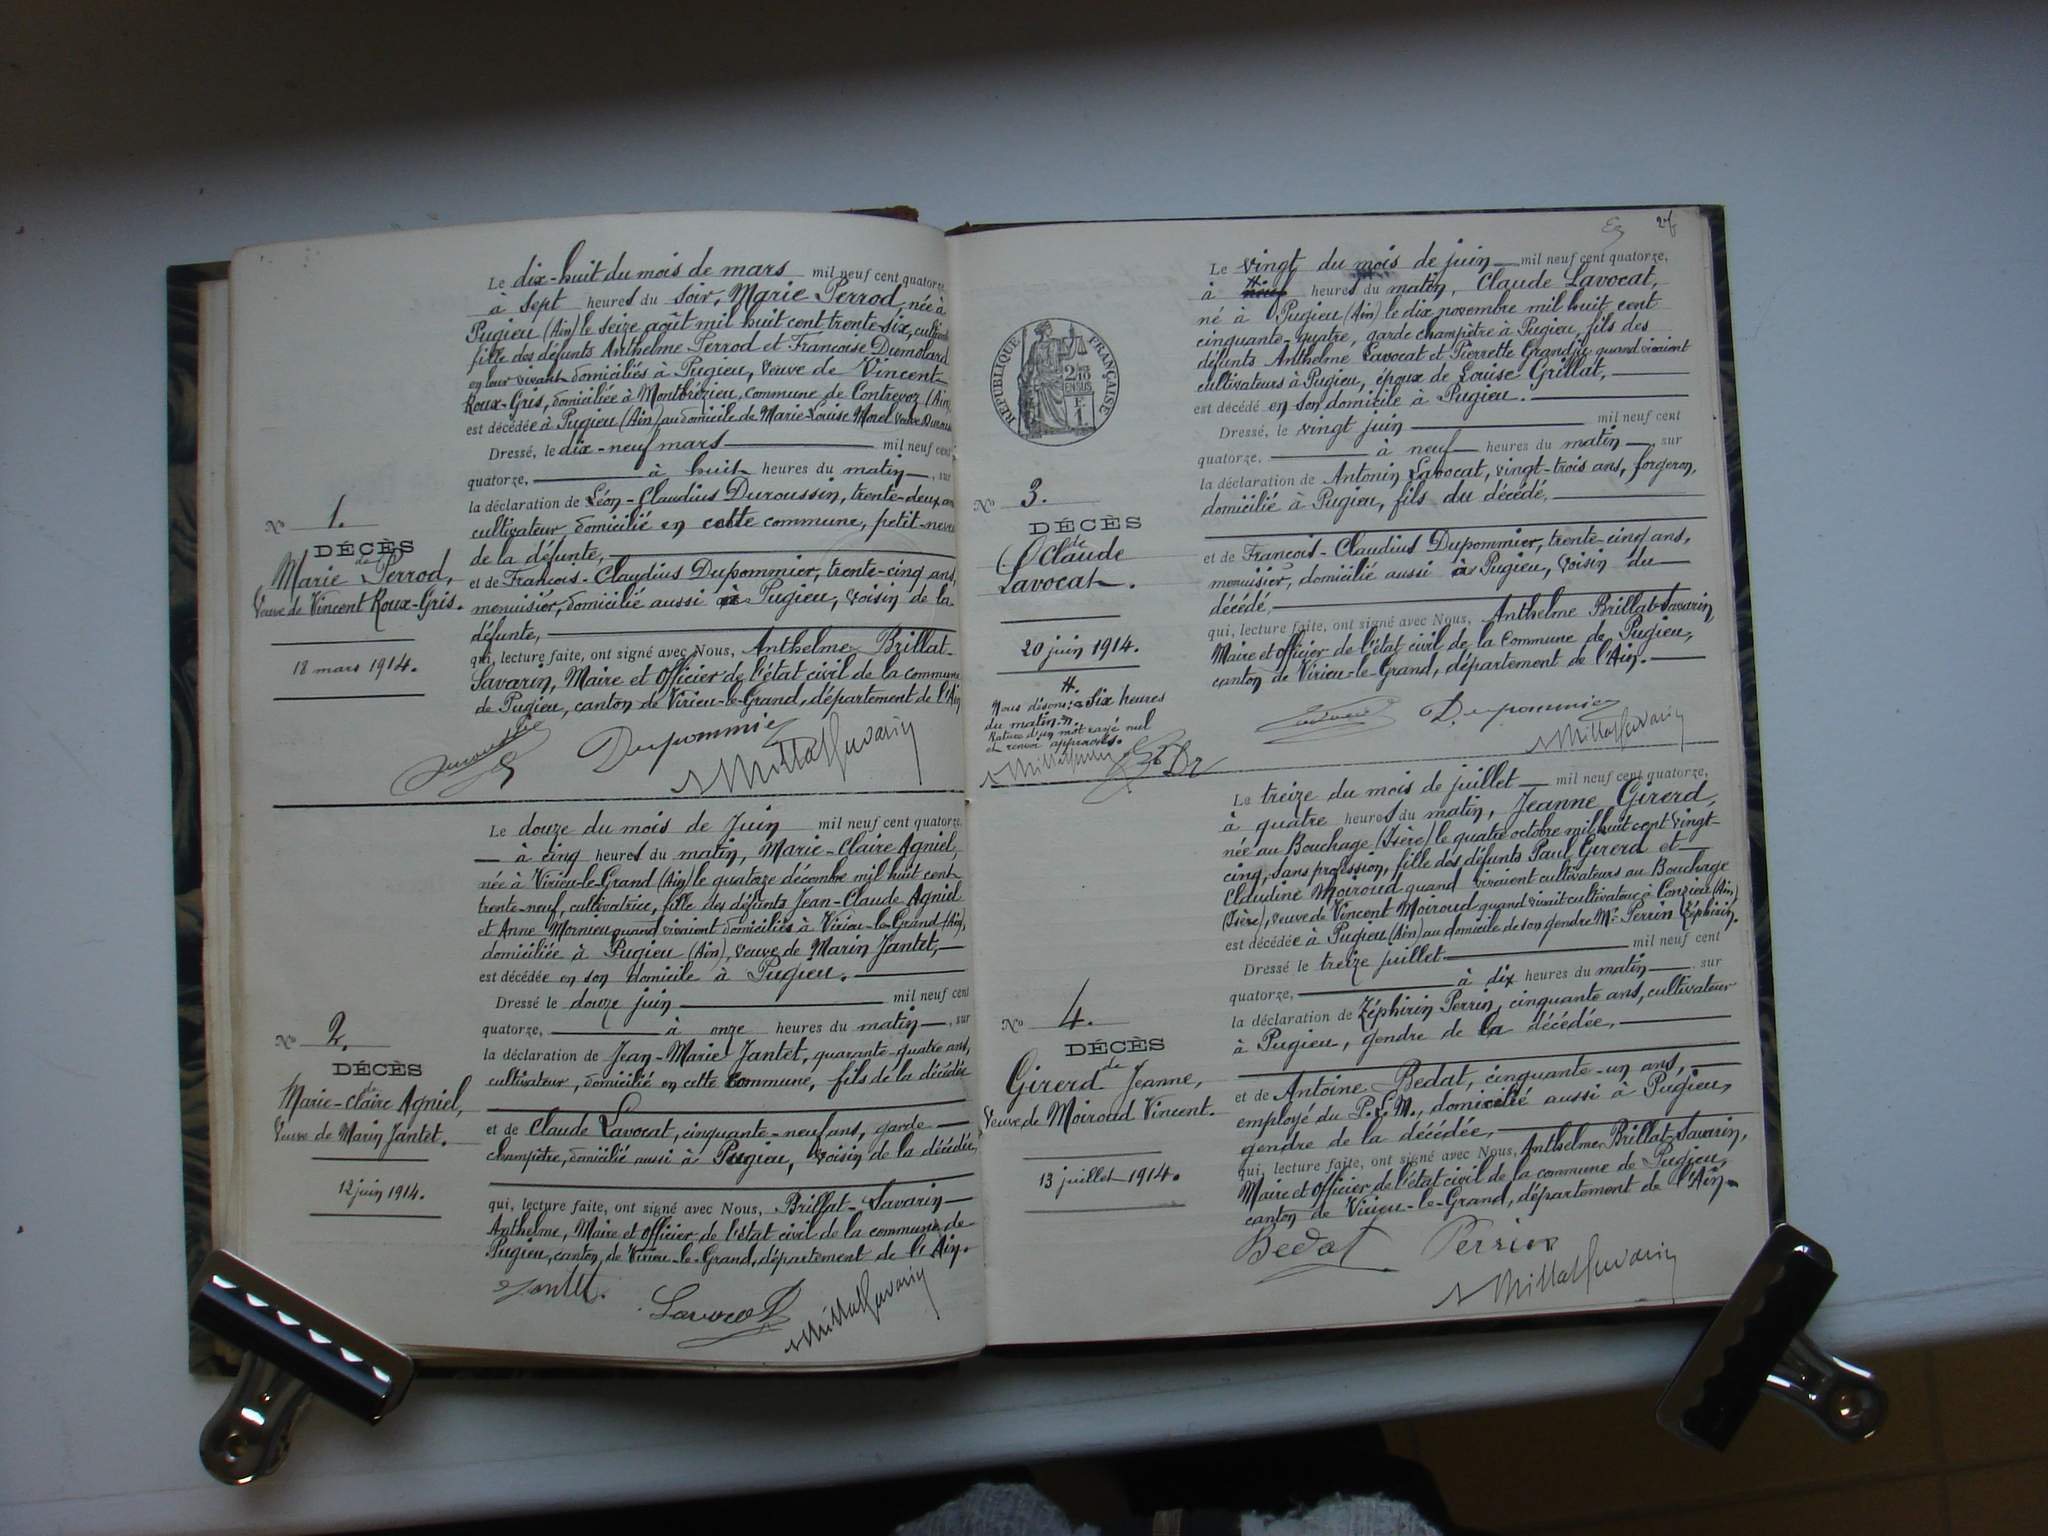 Le dix-huit du mois de mars mil neuf cent quatorze,
à sept heures du soir, Marie Perrod, née à
Pugieu (Ain) le seize août mil huit cent trente-six,
fille des défunts Anthelme Perrod et Françoise Dumolard
en leur vivant domiciliés à Pugieu, veuve de Vincent
Roux-Gris, domiciliée à Montbrézieu, commune de Contrevoz (Ain)
est décédée à Pugieu (Ain) au domicile de Marie-Louise Morel veuve
Dressé, le dix-neuf mars mil neuf cent
quatorze, à huit heures du matin, sur
la déclaration de Léon-Claudius Duroussin, trente-deux ans
cultivateur domicilié en cette commune, petit-neveu
de la défunte,
et de François-Claudius Dupommier, trente-cinq ans,
menuisier, domicilié aussi à Pugieu, voisin de la
défunte,
qui, lecture faite, ont signé avec Nous, Anthelme Brillat-
Savarin, Maire et Officier de l'état civil de la commune
de Pugieu, canton de Virieu-le-Grand, département de l'Ain
Dupommier
Nº 1.
DÉCÈS
de
Marie Perrod,
Veuve de Vincent Roux-Gris.
18 mars 1914.
Le douze du mois de Juin mil neuf cent quatorze,
à cinq heures du matin, Marie-Claire Agniel,
née à Virieu-le-Grand (Ain) le quatorze décembre mil huit cent
trente-neuf, cultivatrice, fille des défunts Jean-Claude Agniel
et Anne Mornieu quand vivaient domiciliés à Virieu-le-Grand (Ain),
domiciliée à Pugieu (Ain), veuve de Marin Jantet,
est décédée en son domicile à Pugieu.
Dressé le douze juin mil neuf cent
quatorze, à onze heures du matin, sur
la déclaration de Jean-Marie Jantet, quarante-quatre ans,
cultivateur, domicilié en cette commune, fils de la décédée
et de Claude Lavocat, cinquante-neuf ans, garde
champêtre, domicilié aussi à Pugieu, voisin de la décédée,
qui, lecture faite, ont signé avec Nous, Brillat-Savarin
Anthelme, Maire et Officier de l'état civil de la commune de
Pugieu, canton de Virieu-le-Grand, département de l'Ain.
Jantet.
Lavocat
Nº 2.
DÉCÈS
de
Marie-Claire Agniel,
Veuve de Marin Jantet.
12 juin 1914.
Le vingt du mois de juin mil neuf cent quatorze,
à heures du matin, Claude Lavocat,
né à Pugieu (Ain) le dix novembre mil huit cent
cinquante-quatre, garde champêtre à Pugieu, fils des
défunts Anthelme Lavocat et Pierrette Grandjv quand vivaient
cultivateurs à Pugieu, époux de Louise Grillat,
est décédé en son domicile à Pugieu.
Dressé, le vingt juin mil neuf cent
quatorze, à neuf heures du matin, sur
la déclaration de Antonin Lavocat, vingt-trois ans, forgeron,
domicilié à Pugieu, fils du décédé,
et de François-Claudius Dupommier, trente-cinq ans,
menuisier, domicilié aussi à Pugieu, voisin du
décédé,
qui, lecture faite, ont signé avec Nous, Anthelme Brillat-Savarin,
Maire et Officier de l'état civil de la Commune de Pugieu,
canton de Virieu-le-Grand, département de l'Ain.
Dupommier
RÉPUBLIQUE FRANÇAISE
Nº 3.
DÉCÈS
de
Claude
Lavocat.
20 juin 1914.
Nous disons: Six heures
du matin.
Rature d'un mot rayé nul
et renvoi approuvés.
Le treize du mois de juillet mil neuf cent quatorze,
à quatre heures du matin, Jeanne Girerd,
née au Bouchage (Isère) le quatre octobre mil huit cent vingt-
cinq, sans profession, fille des défunts Paul Girerd et
Claudine Moiroud quand vivaient cultivateurs au Bouchage
(Isère), veuve de Vincent Moiroud quand vivait cultivateur à Conzieu (Ain)
est décédée à Pugieu (Ain) au domicile de son gendre Mr. Perrin Zéphirin.
Dressé le treize juillet mil neuf cent
quatorze, à dix heures du matin, sur
la déclaration de Zéphirin Perrin, cinquante ans, cultivateur
à Pugieu, gendre de la décédée,
et de Antoine Bedat, cinquante-un ans,
employé du P.L.M., domicilié aussi à Pugieu,
gendre de la décédée,
qui, lecture faite, ont signé avec Nous, Anthelme Brillat-Savarin,
Maire et Officier de l'état civil de la commune de Pugieu,
canton de Virieu-le-Grand, département de l'Ain.
Bedat Perrin
Nº 4.
DÉCÈS
de
Girerd Jeanne,
Veuve de Moiroud Vincent.
13 juillet 1914.